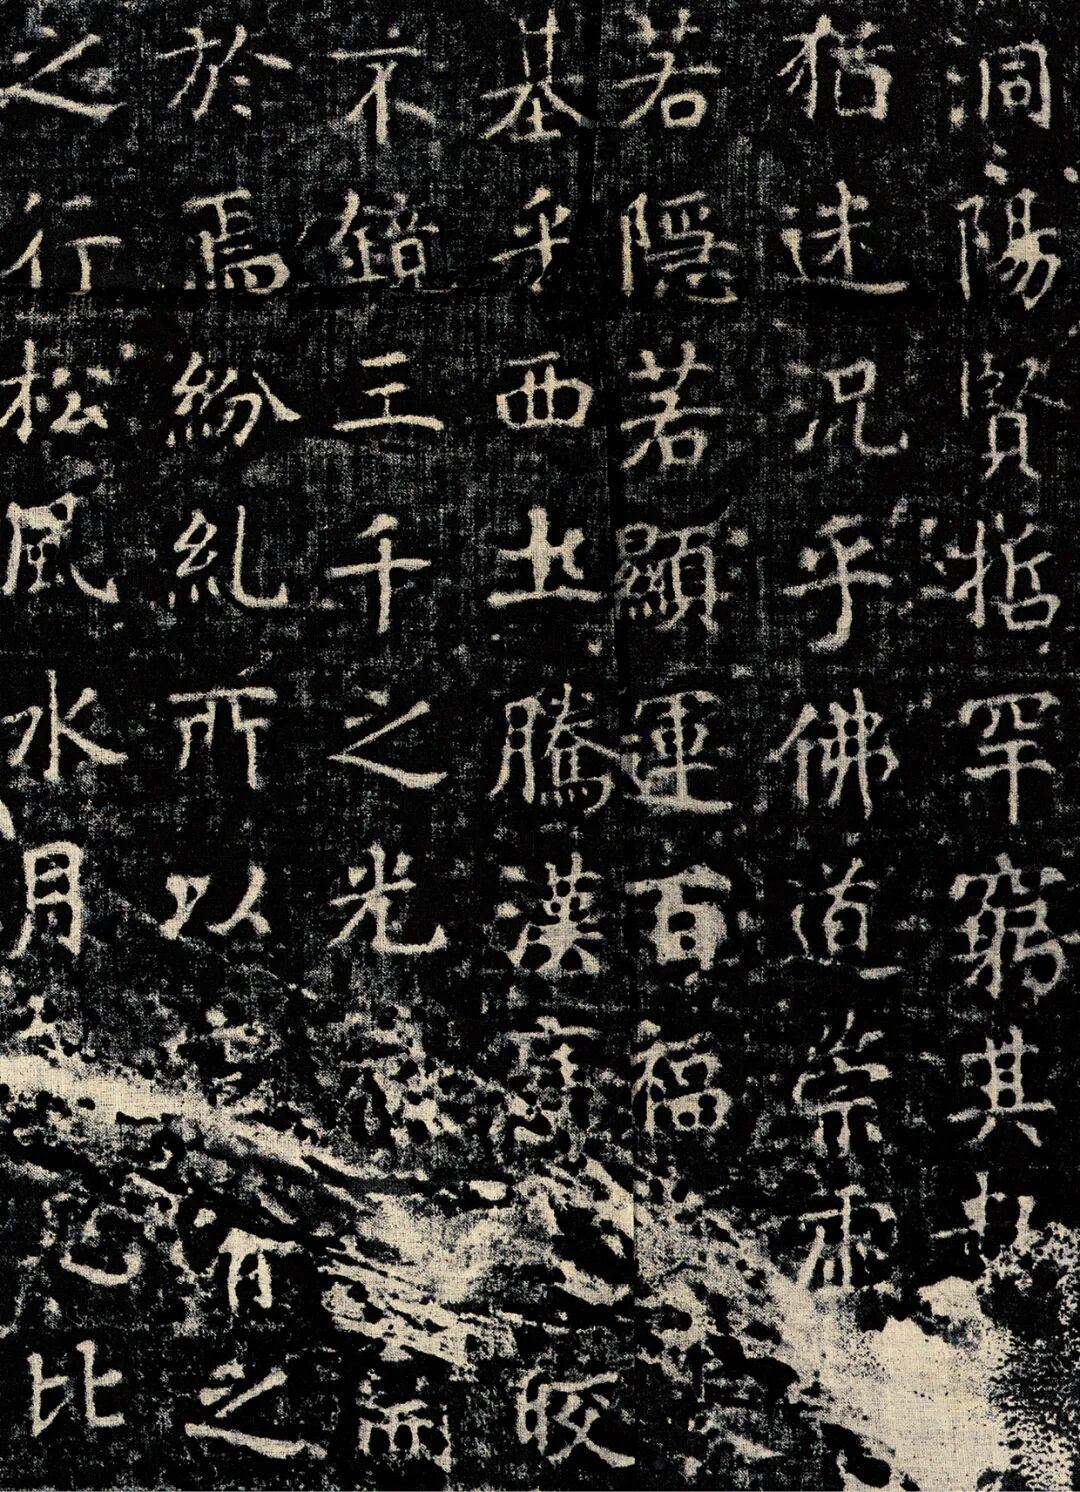 洞陽賢哲罕窮其
猶迷況乎佛道崇虛
若隱若顯運百福
基乎西土騰漢庭皎
不鏡三千之光
於焉紛糺所以空有之
之行松風水月比